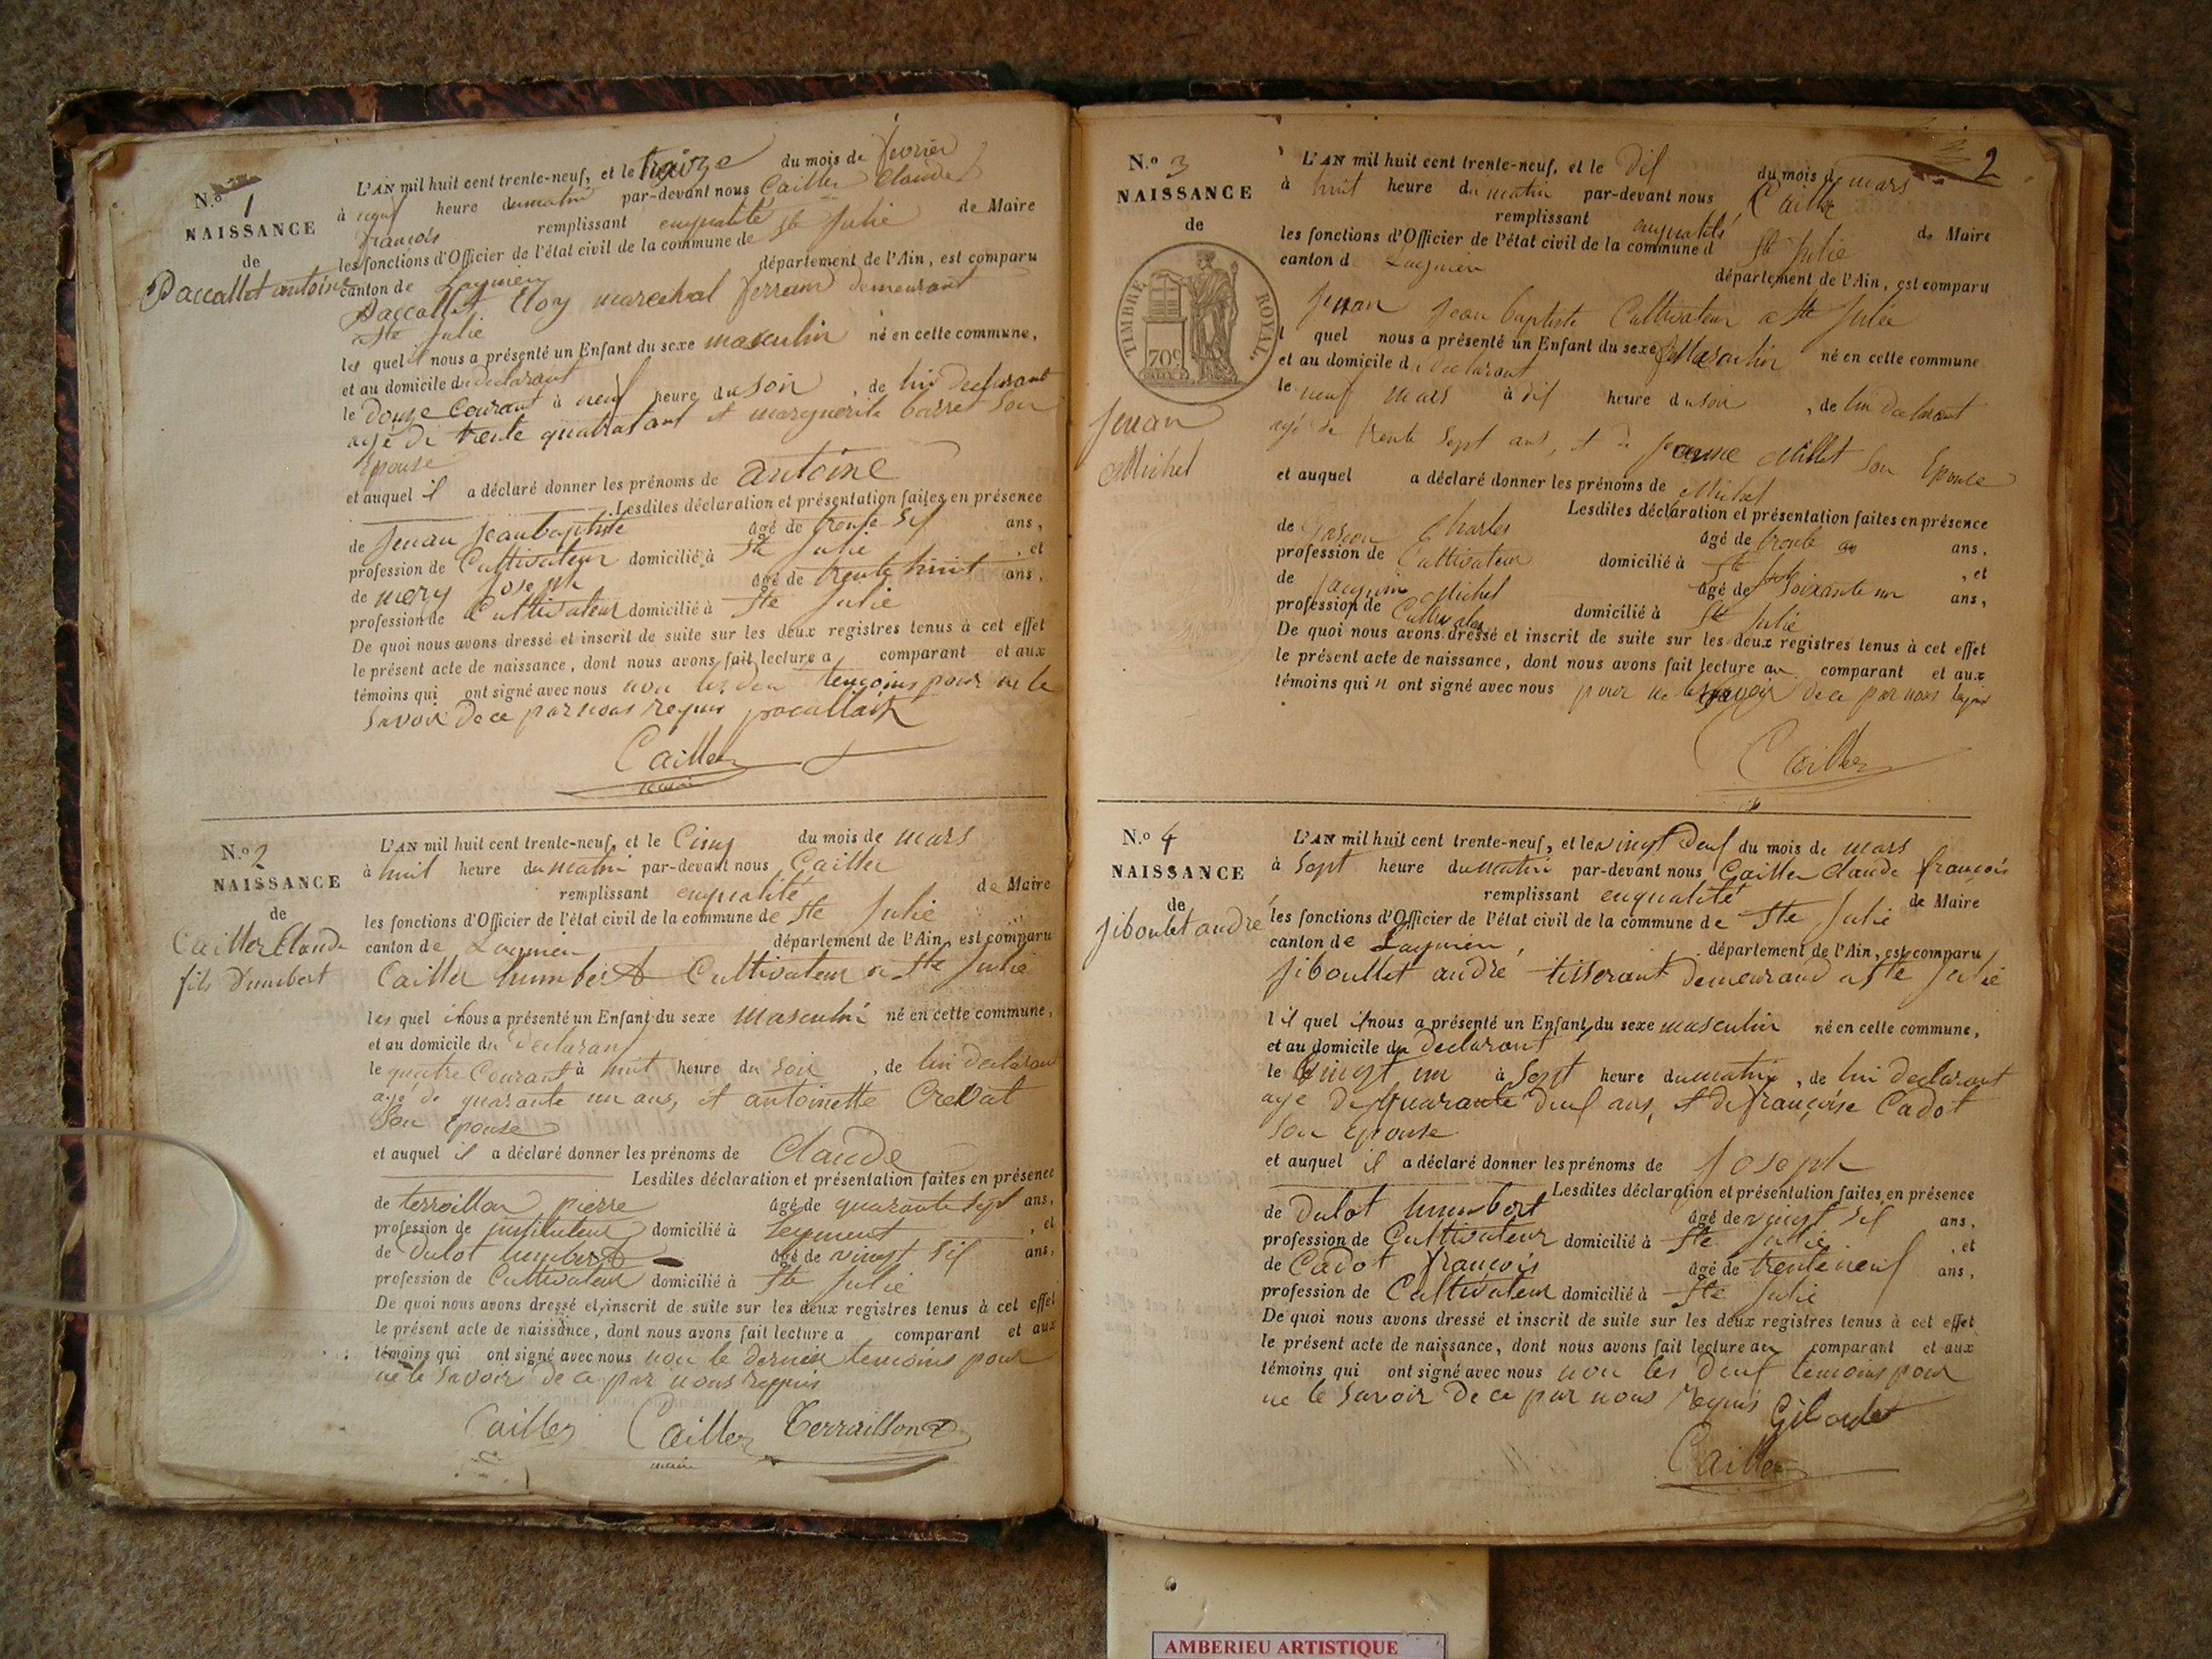 N.o 1
NAISSANCE
de
Paccallet antoine
L'AN mil huit cent trente-neuf, et le treize du mois de fevrier
à neuf heure du matin par-devant nous Cailler Claude
françois remplissant enqualité de Maire
les fonctions d'Officier de l'état civil de la commune de Ste Julie
canton de Lagnieu département de l'Ain, est comparu
Paccallet Eloy marechal ferrand demeurant
a Ste Julie
les quel il nous a présenté un Enfant du sexe masculin né en cette commune,
et au domicile du declarant
le douze Courant à neuf heure du soir, de lui declarant
agé de trente quatre ans et marguerite barret son
Epouse
et auquel il a déclaré donner les prénoms de antoine
Lesdites déclaration et présentation faites en présence
de Jeuan Jean baptiste âgé de trente Sif ans,
profession de Cultivateur domicilié à Ste Julie, et
de mery Joseph âgé de trente huit ans,
profession de Cultivateur domicilié à Ste Julie
De quoi nous avons dressé et inscrit de suite sur les deux registres tenus à cet effet
le présent acte de naissance, dont nous avons fait lecture a comparant et aux
témoins qui ont signé avec nous non les deux temoins pour ne le
Savoir de ce par nous requis
Cailler
maire
N.o 2
NAISSANCE
de
Cailler Claude
fils D'umbert
L'AN mil huit cent trente-neuf, et le Cinq du mois de mars
à huit heure du matin par-devant nous Cailler
remplissant enqualité de Maire
les fonctions d'Officier de l'état civil de la commune de Ste Julie
canton de Lagnieu département de l'Ain, est comparu
Cailler humbert Cultivateur a Ste Julie
les quel il nous a présenté un Enfant du sexe masculin né en cette commune,
et au domicile du Declarant
le quatre Courant à huit heure du soir, de lui declarant
agé de quarante un ans, et antoinette Crevat
Son Epouse
et auquel il a déclaré donner les prénoms de Claude
Lesdites déclaration et présentation faites en présence
de terraillon pierre âgé de quarante sept ans,
profession de instituteur domicilié à Leyment, et
de Dulot humbert âgé de vingt Sif ans,
profession de Cultivateur domicilié à Ste Julie
De quoi nous avons dressé et inscrit de suite sur les deux registres tenus à cet effet
le présent acte de naissance, dont nous avons fait lecture a comparant et aux
témoins qui ont signé avec nous non le dernier temoins pour
ne le Savoir de ce par nous requis
Cailler Cailler Terraillon
maire
2
N.o 3
NAISSANCE
de
TIMBRE ROYAL
70c
Jeuan
Michel
L'AN mil huit cent trente-neuf, et le Dif du mois de mars
à huit heure du matin par-devant nous Cailler
remplissant enqualité de Maire
les fonctions d'Officier de l'état civil de la commune d Ste Julie
canton d Lagnieu département de l'Ain, est comparu
Jeuan Jean baptiste Cultivateur a Ste Julie
l quel nous a présenté un Enfant du sexe Masculin né en cette commune
et au domicile du declarant
le neuf mars à dif heure du soir, de lui declarant
agé de trente Sept ans, et de Jeanne Millet Son Epouse
et auquel a déclaré donner les prénoms de Michel
Lesdites déclaration et présentation faites en présence
de Charles âgé de trente ans,
profession de Cultivateur domicilié à Ste Julie, et
de Michel âgé de Soixante un ans,
profession de domicilié à Ste Julie
De quoi nous avons dressé et inscrit de suite sur les deux registres tenus à cet effet
le présent acte de naissance, dont nous avons fait lecture au comparant et aux
témoins qui n ont signé avec nous pour ne le savoir de ce par nous requis
Cailler
N.o 4
NAISSANCE
de
Jiboulet andré
L'AN mil huit cent trente-neuf, et le vingt Deuf du mois de mars
à Sept heure du matin par-devant nous Cailler Claude françois
remplissant enqualité de Maire
les fonctions d'Officier de l'état civil de la commune de Ste Julie
canton de Lagnieu, département de l'Ain, est comparu
Jiboullet andré tisserant demeurand a Ste Julie
l il quel il nous a présenté un Enfant du sexe masculin né en cette commune,
et au domicile du Declarant
le vingt un à Sept heure du matin, de lui declarant
agé De quarante deuf ans, et de françoise Cadot
Son Epouse
et auquel il a déclaré donner les prénoms de Joseph
Lesdites déclaration et présentation faites en présence
de Dulot humbert âgé de vingt Sif ans,
profession de Cultivateur domicilié à Ste Julie, et
de Cadot françois âgé de trente neuf ans,
profession de Cultivateur domicilié à Ste Julie
De quoi nous avons dressé et inscrit de suite sur les deux registres tenus à cet effet
le présent acte de naissance, dont nous avons fait lecture au comparant et aux
témoins qui ont signé avec nous non les Deuf temoins pour
ne le Savoir De ce par nous requis Giboulet
Cailler
AMBERIEU ARTISTIQUE